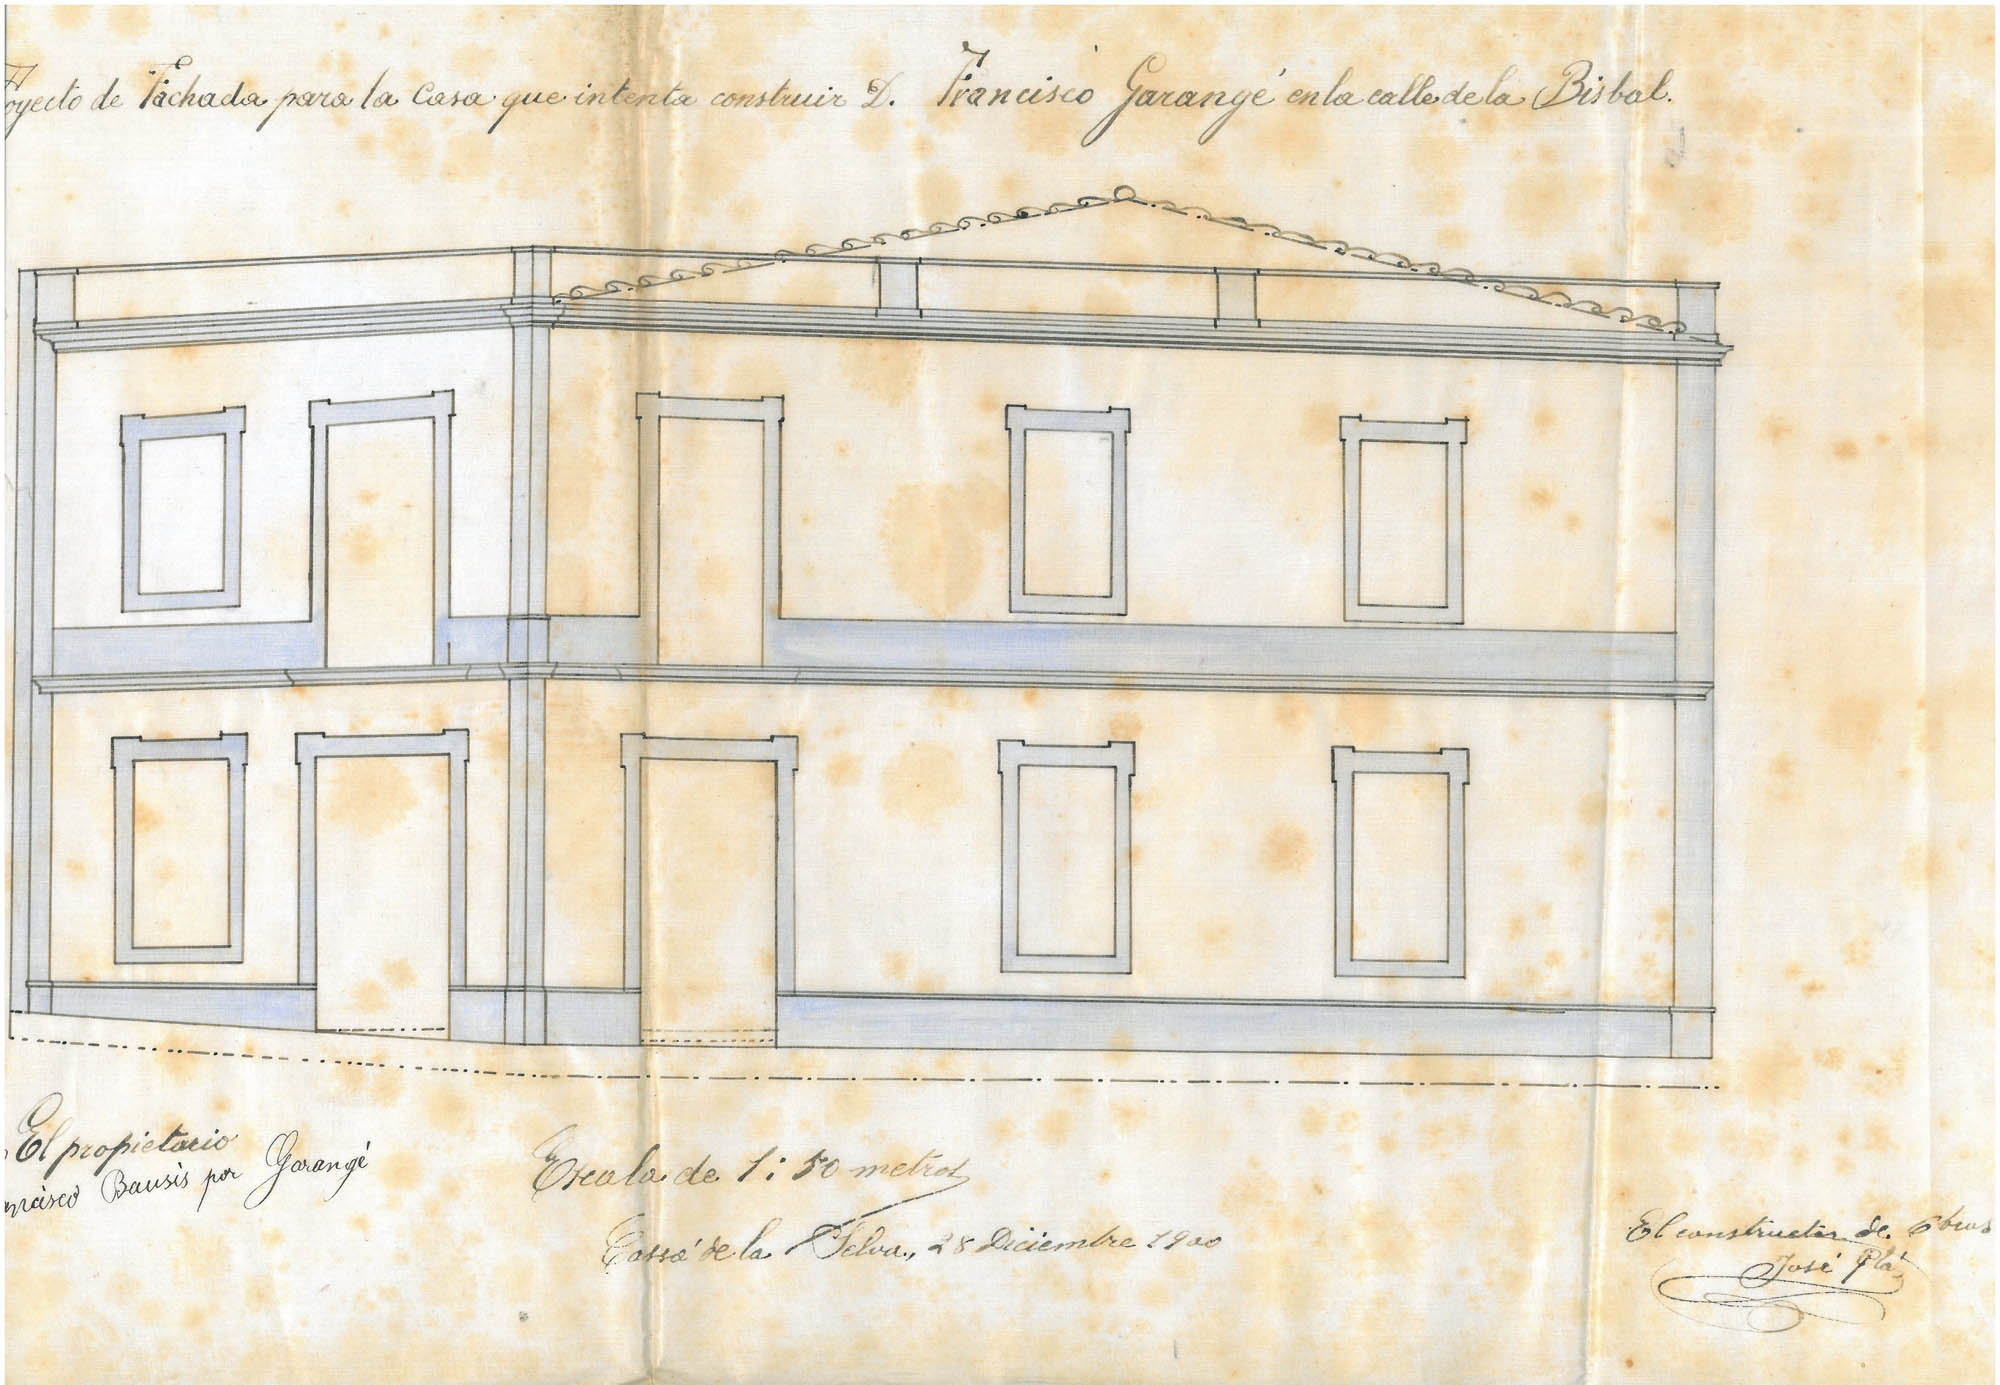 royecto de Fachada para la casa que intenta construir D. Francisco Garangé en la calle de la Bisbal.
El propietario
ncisco Bausis por Garangé
Escala de 1:50 metros
Cassá de la Selva, 28 Diciembre 1900
El constructor de Obras
José Plá